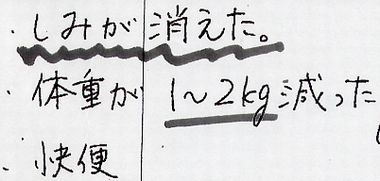 ・しみが消えた。
・体重が 1～2kg減った
・快便